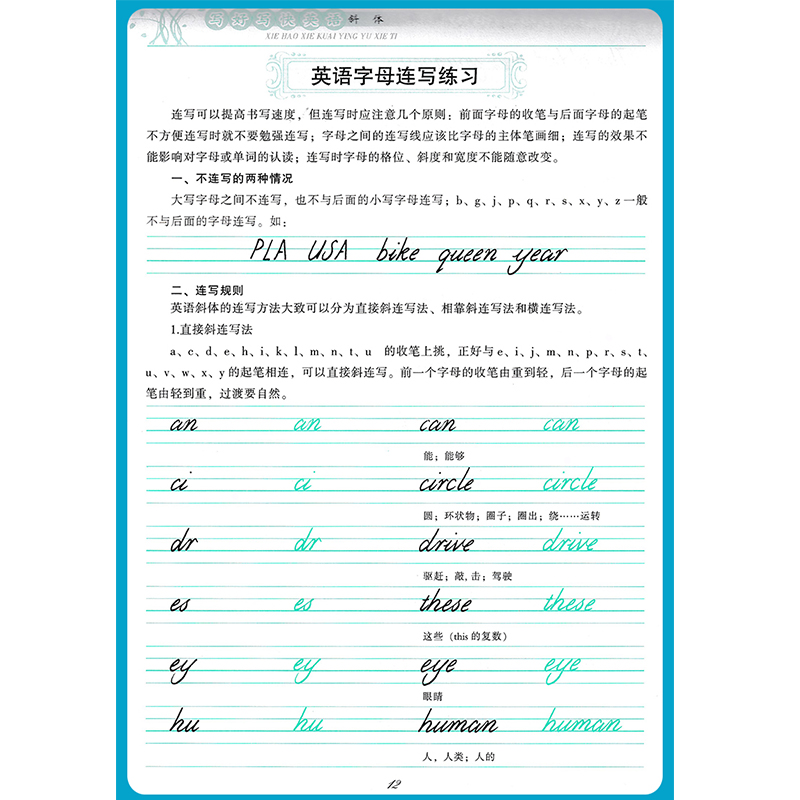 写好写快英语 斜 体
XIE HAO XIE KUAI YING YU XIE TI
英语字母连写练习
连写可以提高书写速度，但连写时应注意几个原则：前面字母的收笔与后面字母的起笔
不方便连写时就不要勉强连写；字母之间的连写线应该比字母的主体笔画细；连写的效果不
能影响对字母或单词的认读；连写时字母的格位、斜度和宽度不能随意改变。
一、不连写的两种情况
大写字母之间不连写，也不与后面的小写字母连写；b、g、j、p、q、r、s、x、y、z 一般
不与后面的字母连写。如：
PLA USA bike queen year
二、连写规则
英语斜体的连写方法大致可以分为直接斜连写法、相靠斜连写法和横连写法。
1.直接斜连写法
a、c、d、e、h、i、k、l、m、n、t、u 的收笔上挑，正好与 e、i、j、m、n、p、r、s、t、
u、v、w、x、y 的起笔相连，可以直接斜连写。前一个字母的收笔由重到轻，后一个字母的起
笔由轻到重，过渡要自然。
an an can can
能；能够
ci ci circle circle
圆；环状物；圈子；圈出；绕……运转
dr dr drive drive
驱赶；敲,击；驾驶
es es these these
这些（this 的复数）
ey ey eye eye
眼睛
hu hu human human
人，人类；人的
12